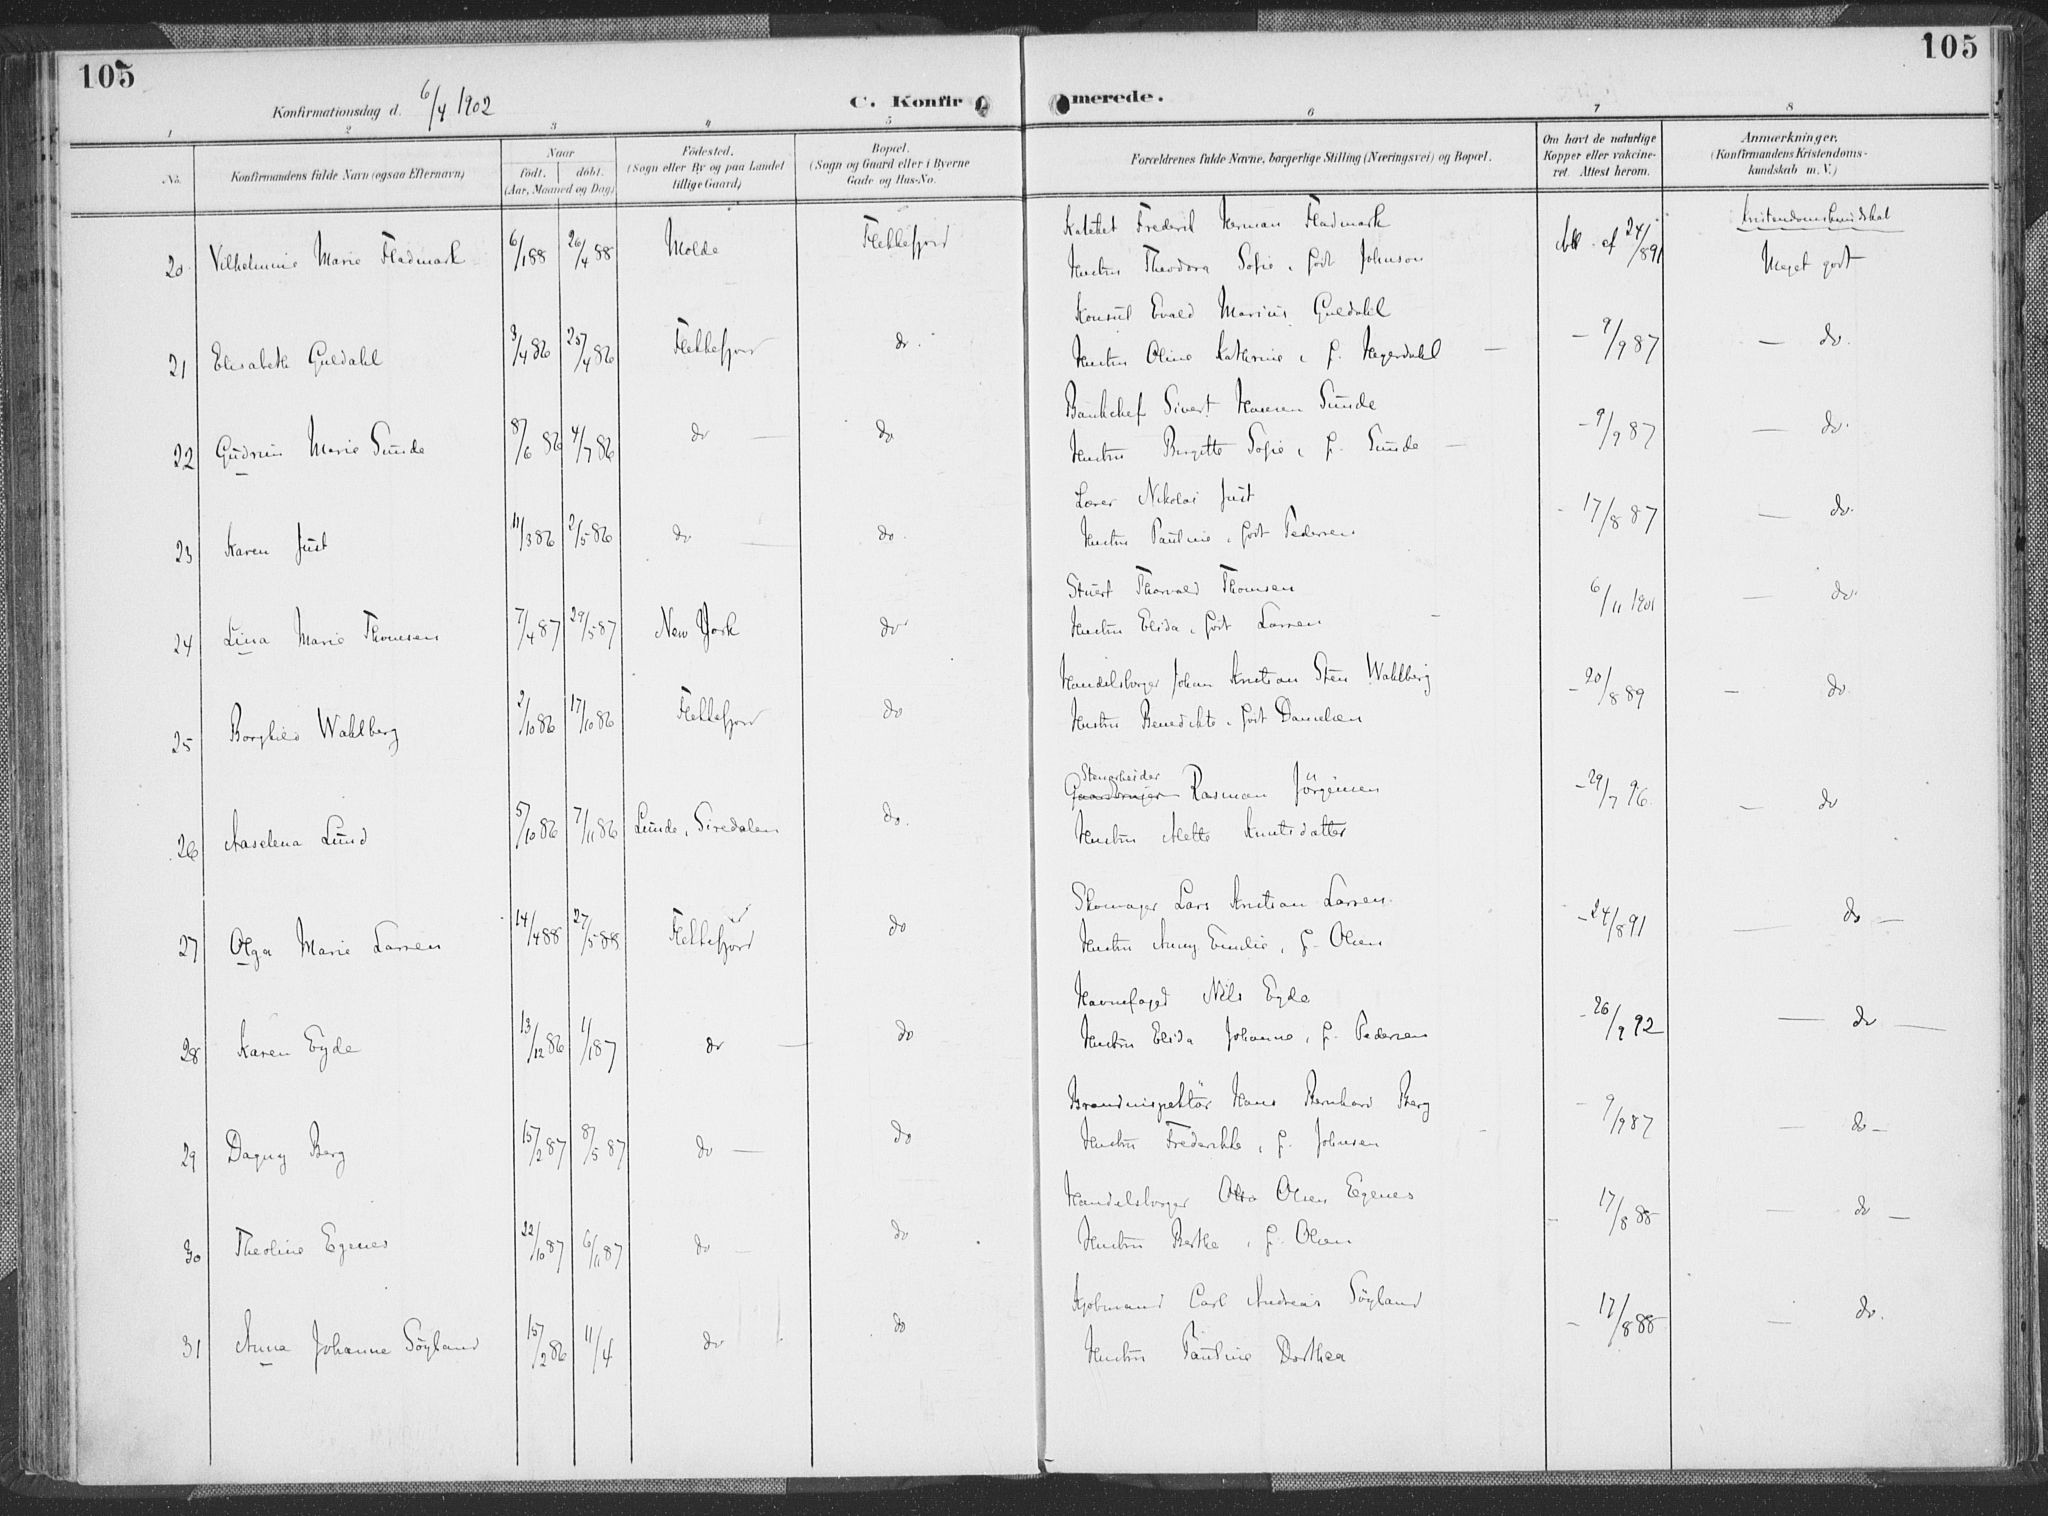 105
105
Konfirmationsdag d. 6/4 1902
C. Konfirmerede.
1 2 3 4 5 6 7 8
No.
Konfirmandens fulde Navn (ogsaa Efternavn)
Naar
födt. döbt.
(Aar, Maaned og Dag)
Födested.
(Sogn eller By og paa Landet
tillige Gaard)
Bopæl.
(Sogn og Gaard eller i Byerne
Gade og Hus-No.
Forældrenes fulde Navne, borgerlige Stilling (Næringsvei) og Bopæl.
Om havt de naturlige
Kopper eller vakcine-
ret. Attest herom.
Anmærkninger.
(Konfirmandens Kristendoms-
kundskab m. V.)
Kristendomskundskab
20 Vilhelmine Marie Fladmark 6/1 88 26/4 88 Molde Flekkefjord Kateket Frederik Herman Fladmark
Hustru Theodora Sofie, födt Johnson Att. af 24/8 91 Meget godt
21 Elisabeth Guldahl 3/4 86 25/4 86 Flekkefjord do. Konsul Evald Marius Guldahl
Hustru Oline Kathrine, f. Heyerdahl – 9/9 87 – do.
22 Gudrun Marie Sunde 8/6 86 4/7 86 do – do Bankchef Sivert Hansen Sunde
Hustru Birgitte Sofie, f. Sunde – 9/9 87 – do.
23 Karen Just 11/3 86 2/5 86 do do. Lærer Nikolai Just
Hustru Pauline, födt Pedersen - 17/8 87 – do.
24 Lina Marie Thomsen 7/4 87 29/5 87 New York do Stuert Thorvald Thomsen
Hustru Elida, födt Larsen – 6/11 1901 – do.
25 Borghild Wahlberg 2/10 86 17/10 86 Flekkefjord do Handelsborger Johan Kristian Sten Wahlberg
Hustru Benedikte, födt Danielsen – 20/8 89 – do.
26 Aaselena Lund 5/10 86 7/11 86 Lunde, Siredalen do. Stenarbeider
Gaardbruger Rasman Jörgensen
Hustru Mette Knutsdatter – 29/7 96. – do
27 Olga Marie Larsen 14/4 88 27/5 88 Flekkefjord do Skomager Lars Kristian Larsen.
Hustru Anny Emilie, f. Olsen – 24/8 91 – do –
28 Karen Eyde 13/12 86 1/1 87 do – do Havnefoged Nils Eyde
Hustru Elida Johanne, f. Pedersen – 26/9 92 – do –
29 Dagny Berg 15/2 87 8/5 87 do – do Brandinspektör Hans Bernhard Berg
Hustru Frederikke, f. Johnsen – 9/9 87 – do –
30 Theoline Egenes 22/10 87 6/11 87 do – do Handelsborger Olsen Egenes
Hustru Berthe, f. Olsen – 17/8 88 – do –
31 Anna Johanne Söyland 15/2 86 11/4 do do Kjobmand Carl Andreas Söyland
Hustru Pauline Dorthea – 17/8 88 – do.